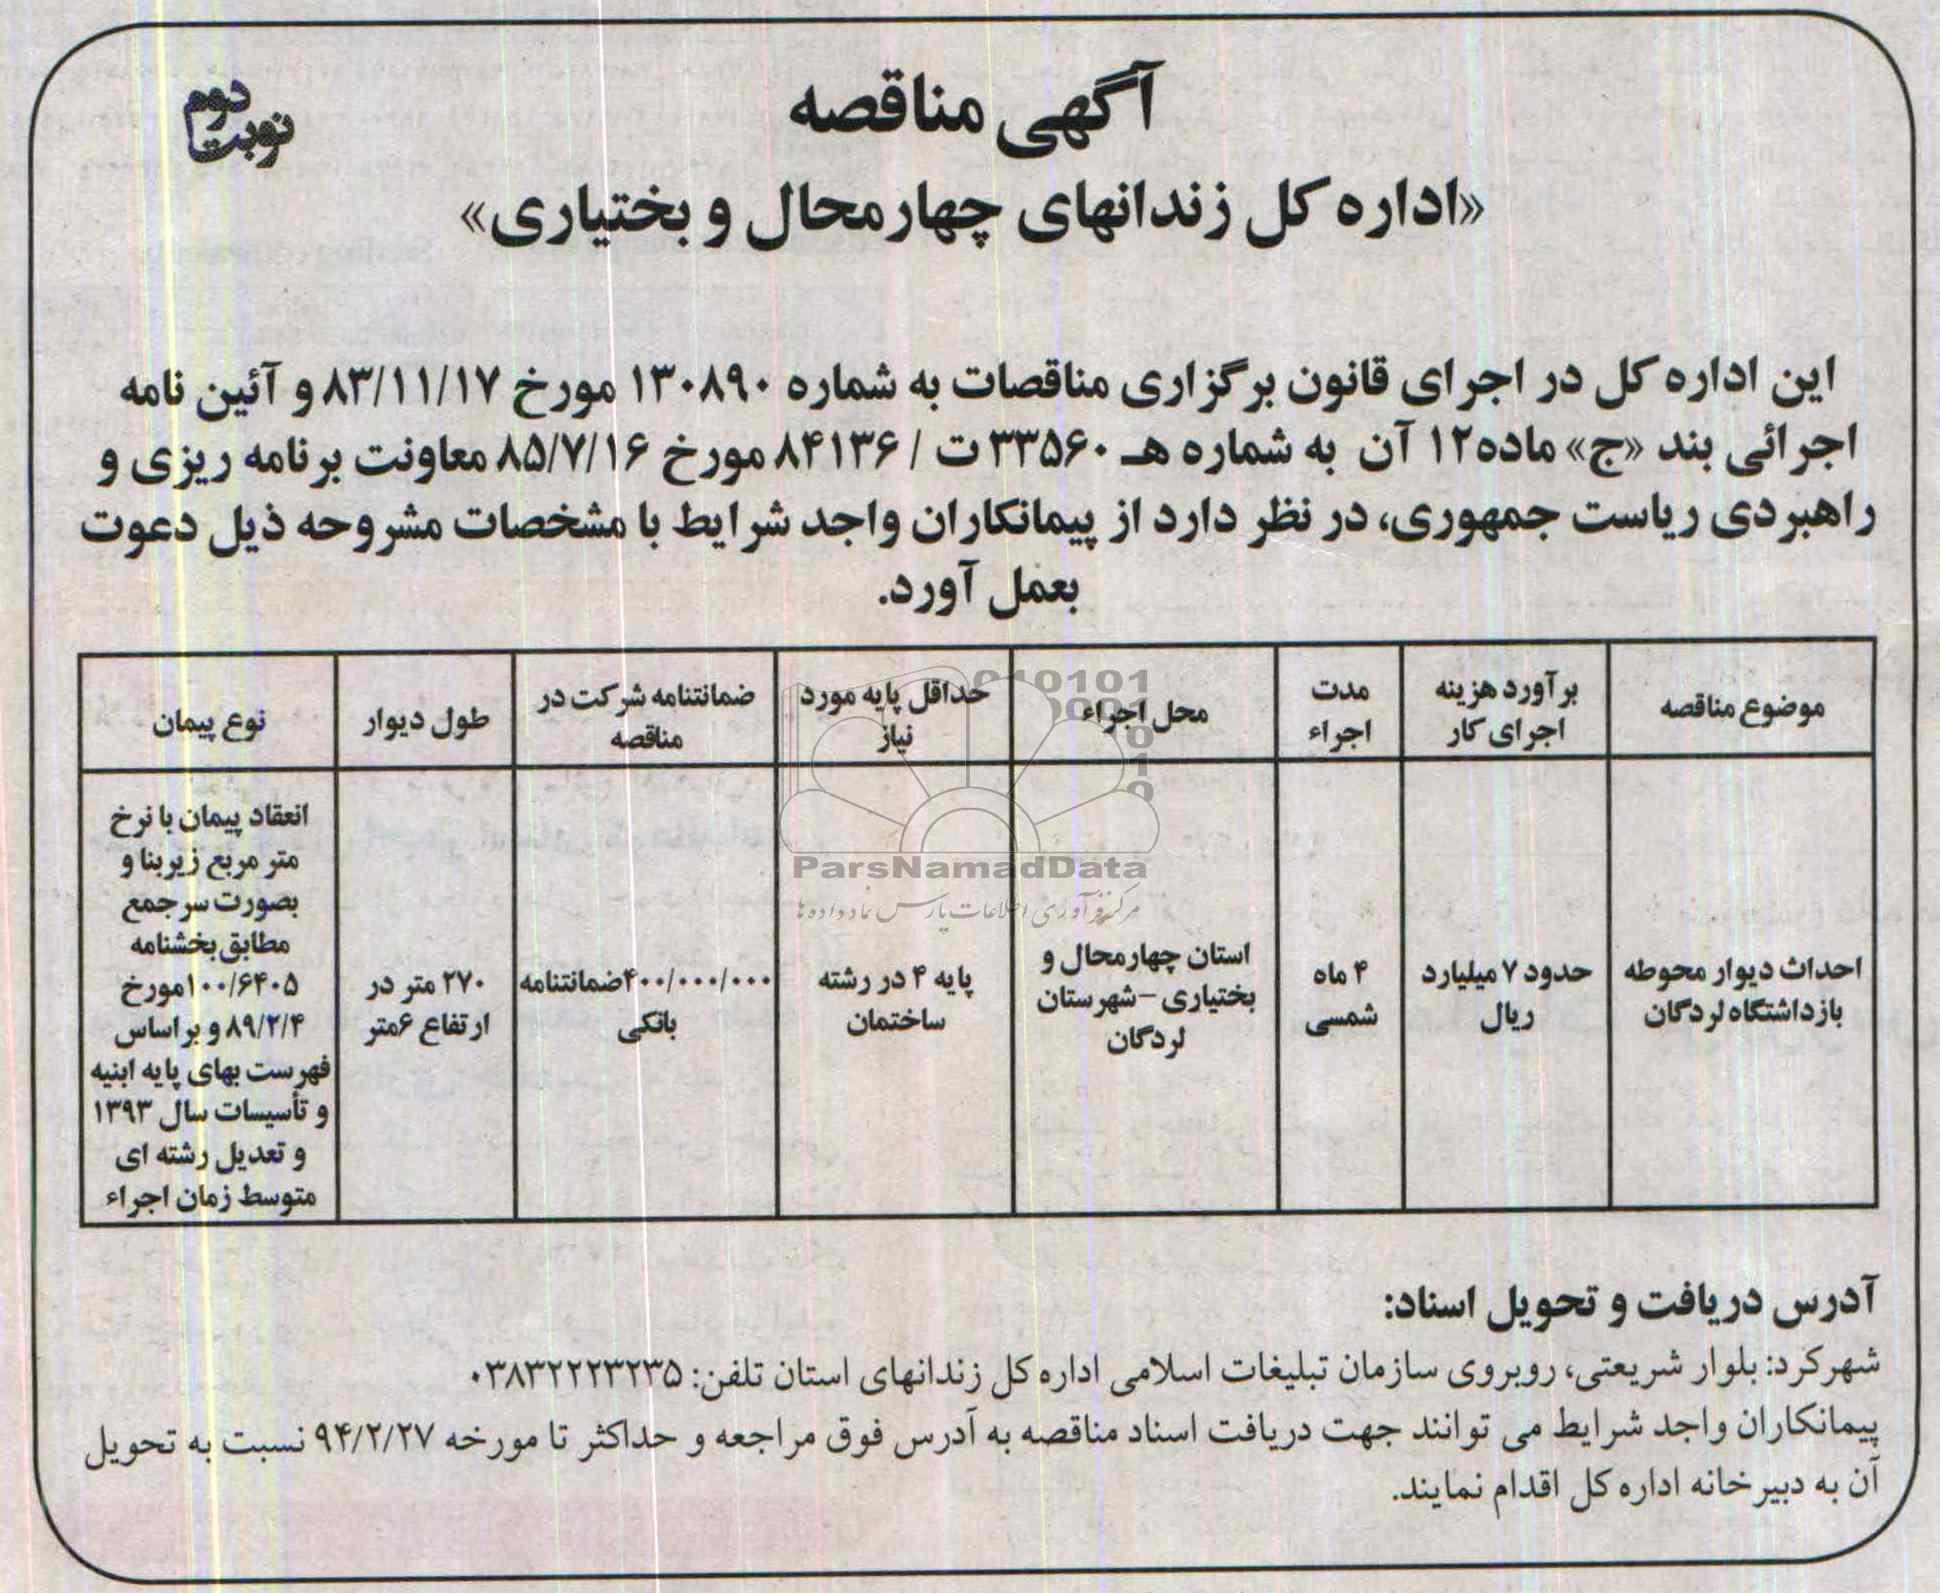 آگهی مناقصه
نوبت دوم
«اداره کل زندانهای چهارمحال و بختیاری»
این اداره کل در اجرای قانون برگزاری مناقصات به شماره ۱۳۰۸۹۰ مورخ ۸۳/۱۱/۱۷ و آئین نامه
اجرائی بند «ج» ماده۱۲ آن به شماره هـ ۳۳۵۶۰ ت / ۸۴۱۳۶ مورخ ۸۵/۷/۱۶ معاونت برنامه ریزی و
راهبردی ریاست جمهوری، در نظر دارد از پیمانکاران واجد شرایط با مشخصات مشروحه ذیل دعوت
بعمل آورد.
موضوع مناقصه
برآورد هزینه
اجرای کار
مدت
اجراء
محل اجراء
حداقل پایه مورد
نیاز
ضمانتنامه شرکت در
مناقصه
طول دیوار
نوع پیمان
احداث دیوار محوطه
بازداشتگاه لردگان
حدود ۷ میلیارد
ریال
۴ ماه
شمسی
استان چهارمحال و
بختیاری -شهرستان
لردگان
پایه ۴ در رشته
ساختمان
۴۰۰/۰۰۰/۰۰۰ضمانتنامه
بانکی
۲۷۰ متر در
ارتفاع ۶متر
انعقاد پیمان با نرخ
متر مربع زیربنا و
بصورت سرجمع
مطابق بخشنامه
۱۰۰/۶۴۰۵مورخ
۸۹/۲/۴ و براساس
فهرست بهای پایه ابنیه
و تأسیسات سال ۱۳۹۳
و تعدیل رشته ای
متوسط زمان اجراء
ParsNamadData
مرکز فرآوری اطلاعات پارس نماد داده ها
آدرس دریافت و تحویل اسناد:
شهرکرد: بلوار شریعتی، روبروی سازمان تبلیغات اسلامی اداره کل زندانهای استان تلفن: ۰۳۸۳۲۲۲۳۲۳۵
پیمانکاران واجد شرایط می توانند جهت دریافت اسناد مناقصه به آدرس فوق مراجعه و حداکثر تا مورخه ۹۴/۲/۲۷ نسبت به تحویل
آن به دبیرخانه اداره کل اقدام نمایند.